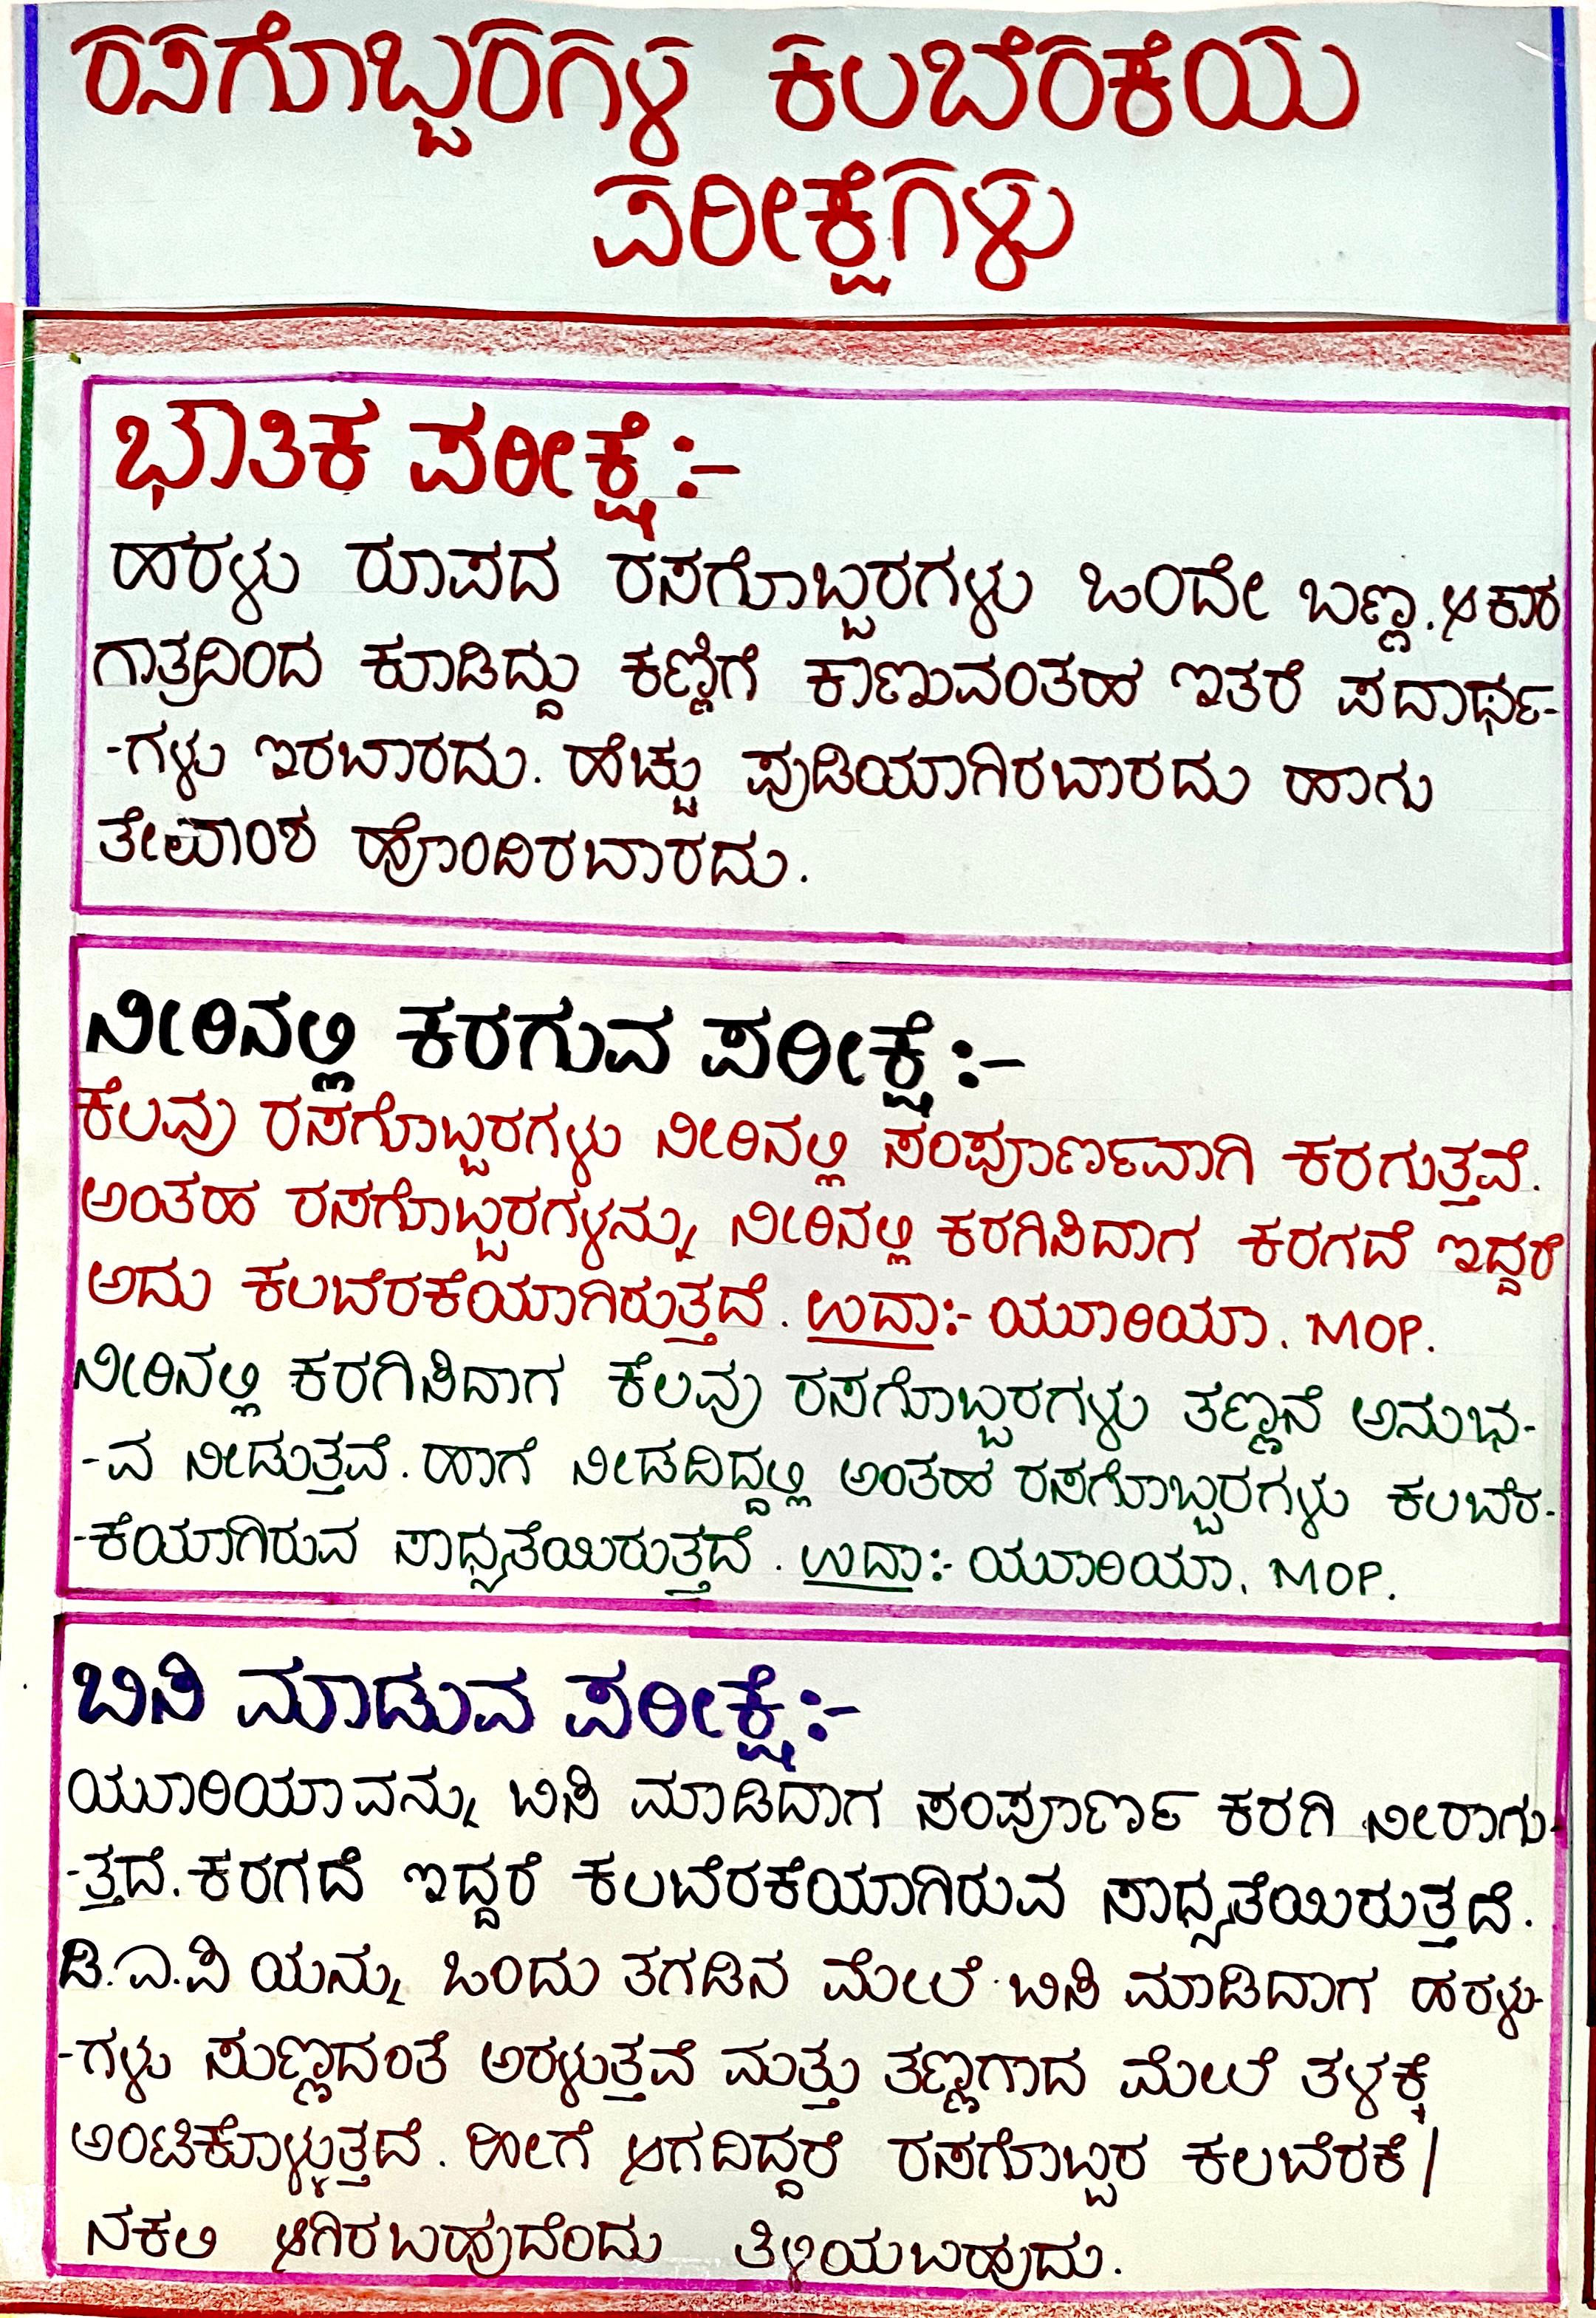 ರಸಗೊಬ್ಬರಗಳ ಕಲಬೆರಕೆಯ
ಪರೀಕ್ಷೆಗಳು
ಭೌತಿಕ ಪರೀಕ್ಷೆ:-
ಹರಳು ರೂಪದ ರಸಗೊಬ್ಬರಗಳು ಒಂದೇ ಬಣ್ಣ. ಆಕಾರ
ಗಾತ್ರದಿಂದ ಕೂಡಿದ್ದು ಕಣ್ಣಿಗೆ ಕಾಣುವಂತಹ ಇತರೆ ಪದಾರ್ಥ-
-ಗಳು ಇರಬಾರದು. ಹೆಚ್ಚು ಪುಡಿಯಾಗಿರಬಾರದು ಹಾಗು
ತೇವಾಂಶ ಹೊಂದಿರಬಾರದು.
ನೀರಿನಲ್ಲಿ ಕರಗುವ ಪರೀಕ್ಷೆ:-
ಕೆಲವು ರಸಗೊಬ್ಬರಗಳು ನೀರಿನಲ್ಲಿ ಸಂಪೂರ್ಣವಾಗಿ ಕರಗುತ್ತವೆ.
ಅಂತಹ ರಸಗೊಬ್ಬರಗಳನ್ನು ನೀರಿನಲ್ಲಿ ಕರಗಿಸಿದಾಗ ಕರಗದೆ ಇದ್ದರೆ
ಅದು ಕಲಬೆರಕೆಯಾಗಿರುತ್ತದೆ. ಉದಾ:- ಯೂರಿಯಾ. MOP.
ನೀರಿನಲ್ಲಿ ಕರಗಿಸಿದಾಗ ಕೆಲವು ರಸಗೊಬ್ಬರಗಳು ತಣ್ಣನೆ ಅನುಭ-
-ವ ನೀಡುತ್ತವೆ. ಹಾಗೆ ನೀಡದಿದ್ದಲ್ಲಿ ಅಂತಹ ರಸಗೊಬ್ಬರಗಳು ಕಲಬೆರ-
-ಕೆಯಾಗಿರುವ ಸಾಧ್ಯತೆಯಿರುತ್ತದೆ. ಉದಾ:- ಯೂರಿಯಾ. MOP.
ಬಿಸಿ ಮಾಡುವ ಪರೀಕ್ಷೆ:-
ಯೂರಿಯಾವನ್ನು ಬಿಸಿ ಮಾಡಿದಾಗ ಸಂಪೂರ್ಣ ಕರಗಿ ನೀರಾಗು-
-ತ್ತದೆ. ಕರಗದೆ ಇದ್ದರೆ ಕಲಬೆರಕೆಯಾಗಿರುವ ಸಾಧ್ಯತೆಯಿರುತ್ತದೆ.
ಡಿ.ಎ.ಪಿ ಯನ್ನು ಒಂದು ತಗಡಿನ ಮೇಲೆ ಬಿಸಿ ಮಾಡಿದಾಗ ಹರಳು-
-ಗಳು ಸುಣ್ಣದಂತೆ ಅರಳುತ್ತವೆ ಮತ್ತು ತಣ್ಣಗಾದ ಮೇಲೆ ತಳಕ್ಕೆ
ಅಂಟಿಕೊಳ್ಳುತ್ತದೆ. ಹೀಗೆ ಆಗದಿದ್ದರೆ ರಸಗೊಬ್ಬರ ಕಲಬೆರಕೆ/
ನಕಲಿ ಆಗಿರಬಹುದೆಂದು ತಿಳಿಯಬಹುದು.